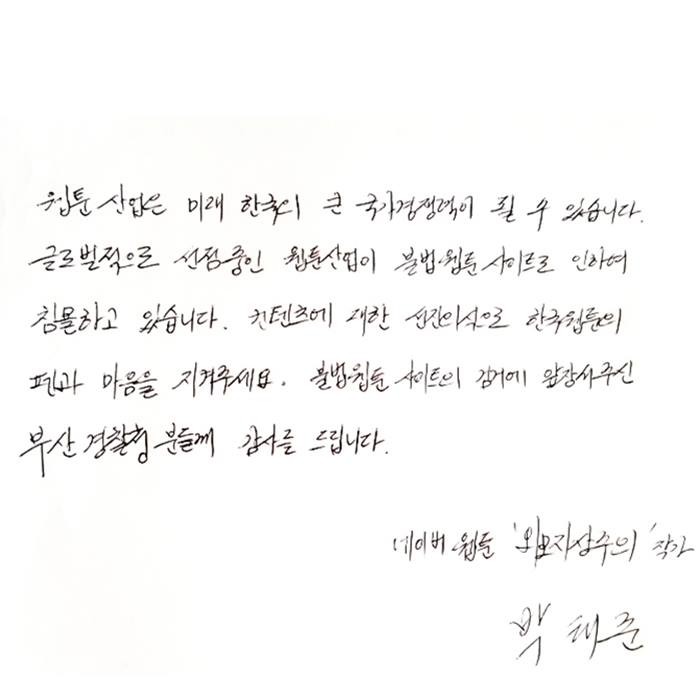 웹툰 산업은 미래 한국의 큰 국가경쟁력이 될 수 있습니다.
글로벌적으로 선점중인 웹툰산업이 불법웹툰 사이트로 인하여
침몰하고 있습니다. 컨텐츠에 대한 선진의식으로 한국웹툰의
펜과 마음을 지켜주세요. 불법웹툰 사이트의 검거에 앞장서주신
부산 경찰청 분들께 감사를 드립니다.
네이버 웹툰 '외모지상주의' 작가
박태준